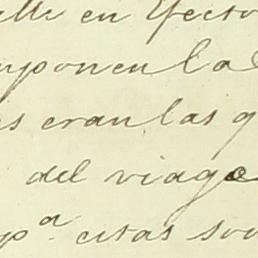 en efecto
ponen la
eran las q
del viage
pª estas son